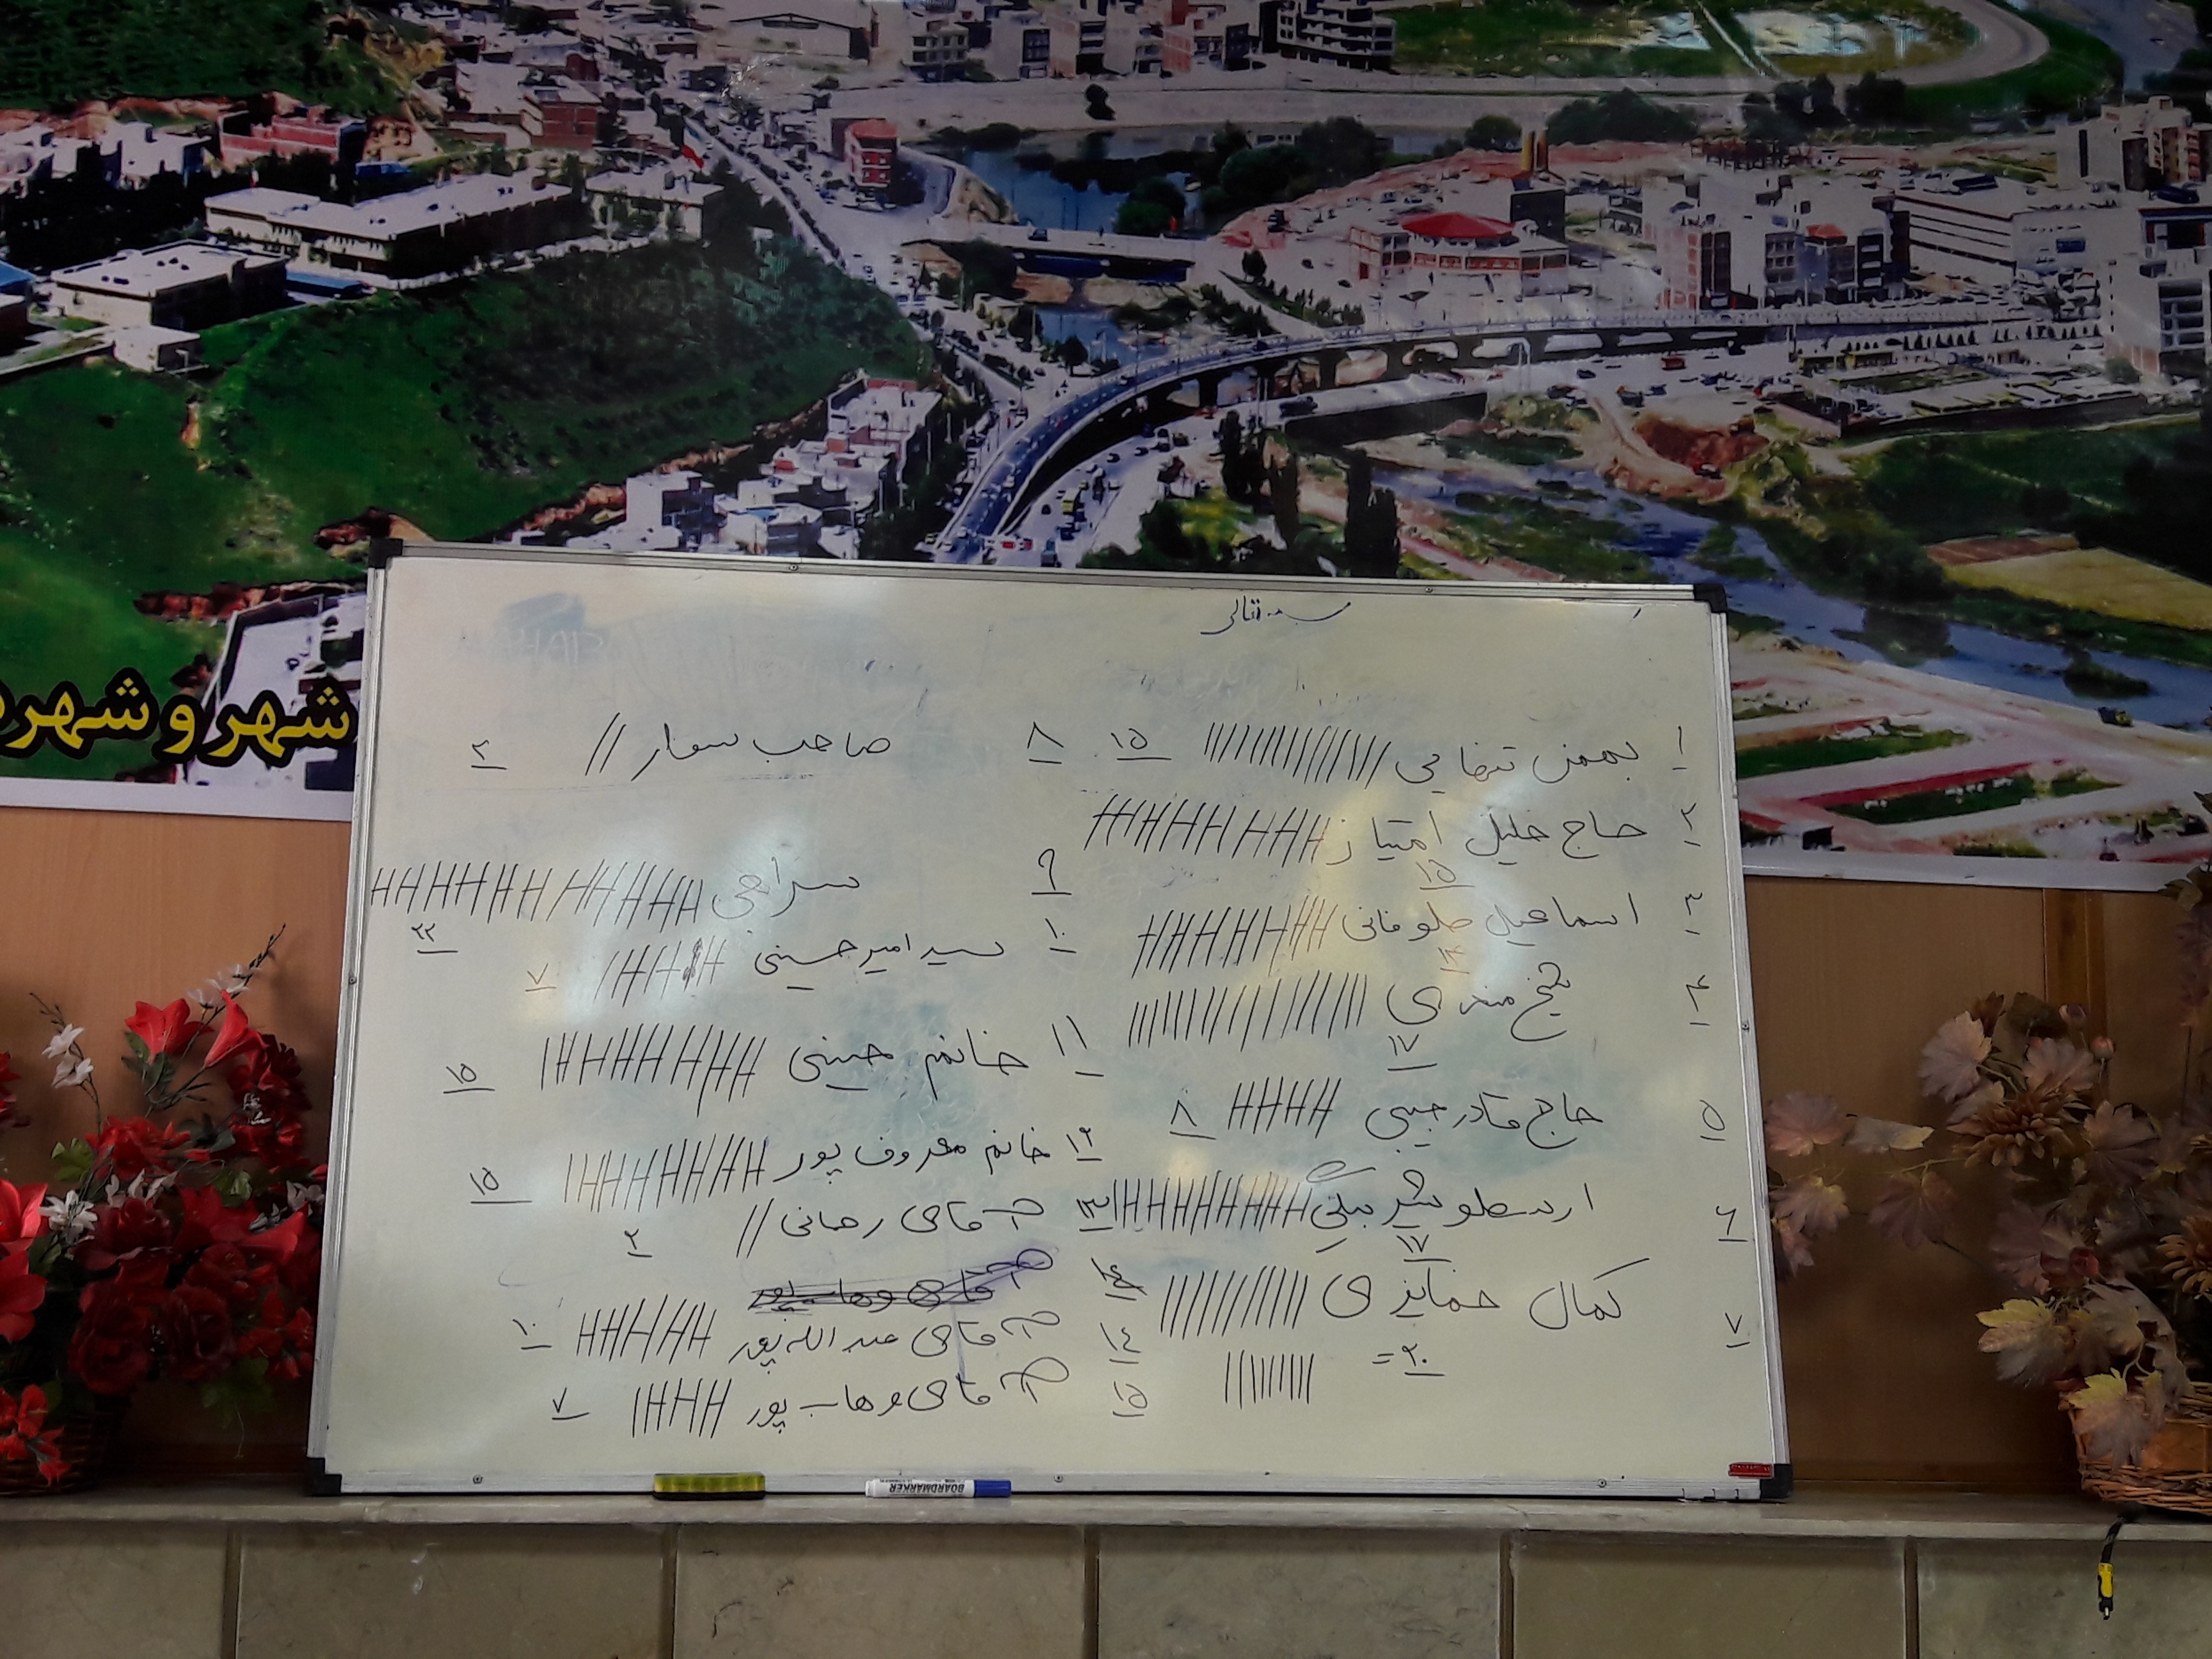 بسمه تعالی
۱ بهمن تنها می ۱۵
۲ حاج خلیل امتیاز
۱۵
۳ اسماعیل طوفانی
۱۴
۴ شیخ مندی
۱۷
۵ حاج قادر حبیبی ۸
۶ ارسطو شیر بیگی
۱۷
۷ کمال خمایزی
= ۲۰
۸ صاحب سوار ۲
۹ سراجی
۲۳
۱۰ سید امیر حسینی ۷
۱۱ خانم حسینی ۱۵
۱۲ خانم معروف پور ۱۵
۱۳ آقای رحمانی
۲
۱۴ آقای عبدالله پور ۱۰
۱۵ آقای وهاب پور ۷
شهر و شهر
BOARDMARKER